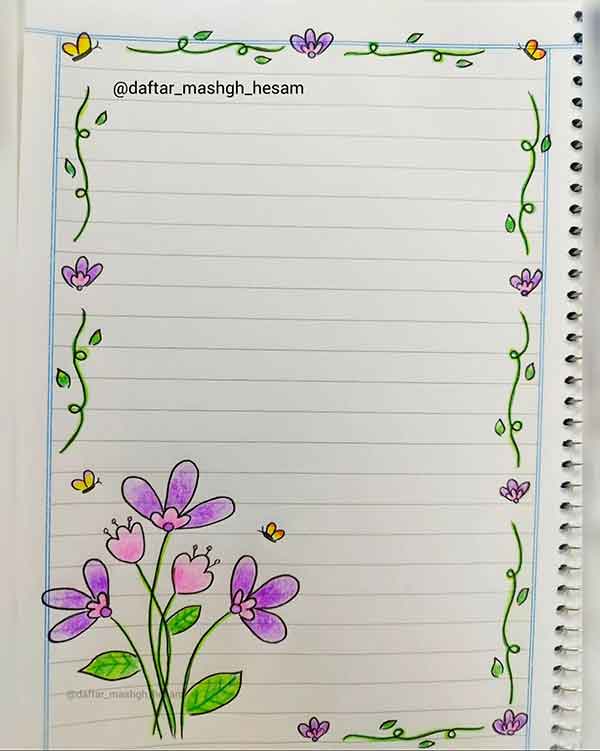 @daftar_mashgh_hesam
@daftar_mashgh_hesam